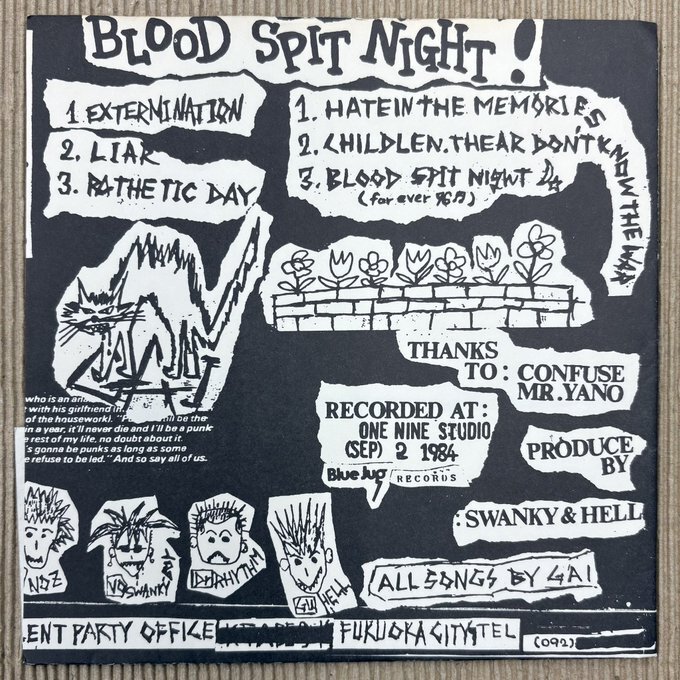 BLOOD SPIT NIGHT!
1 EXTERMINATION
2. LIAR
3. PATHETIC DAY
1. HATE IN THE MEMORIES
2. CHILDLEN.THEAR DON'T KNOW THE WAR
3. BLOOD SPIT NIGHT
(for ever 96♬)
THANKS
TO: CONFUSE
MR.YANO
who is an
with his girlfriend in
of the housework). be the
in a year, it'll never die and I'll be a punk
rest of my life, no doubt about it.
's gonna be punks as long as some
refuse to be led." And so say all of us.
RECORDED AT:
ONE NINE STUDIO
(SEP) 2 1984
Blue Jug RECORDS
PRODUCE
BY
:SWANKY & HELL
NO SWANKY
DRHYTHM
GU HELL
ALL SONGS BY GAI
ENT PARTY OFFICE FUKUOKA CITY TEL (092)